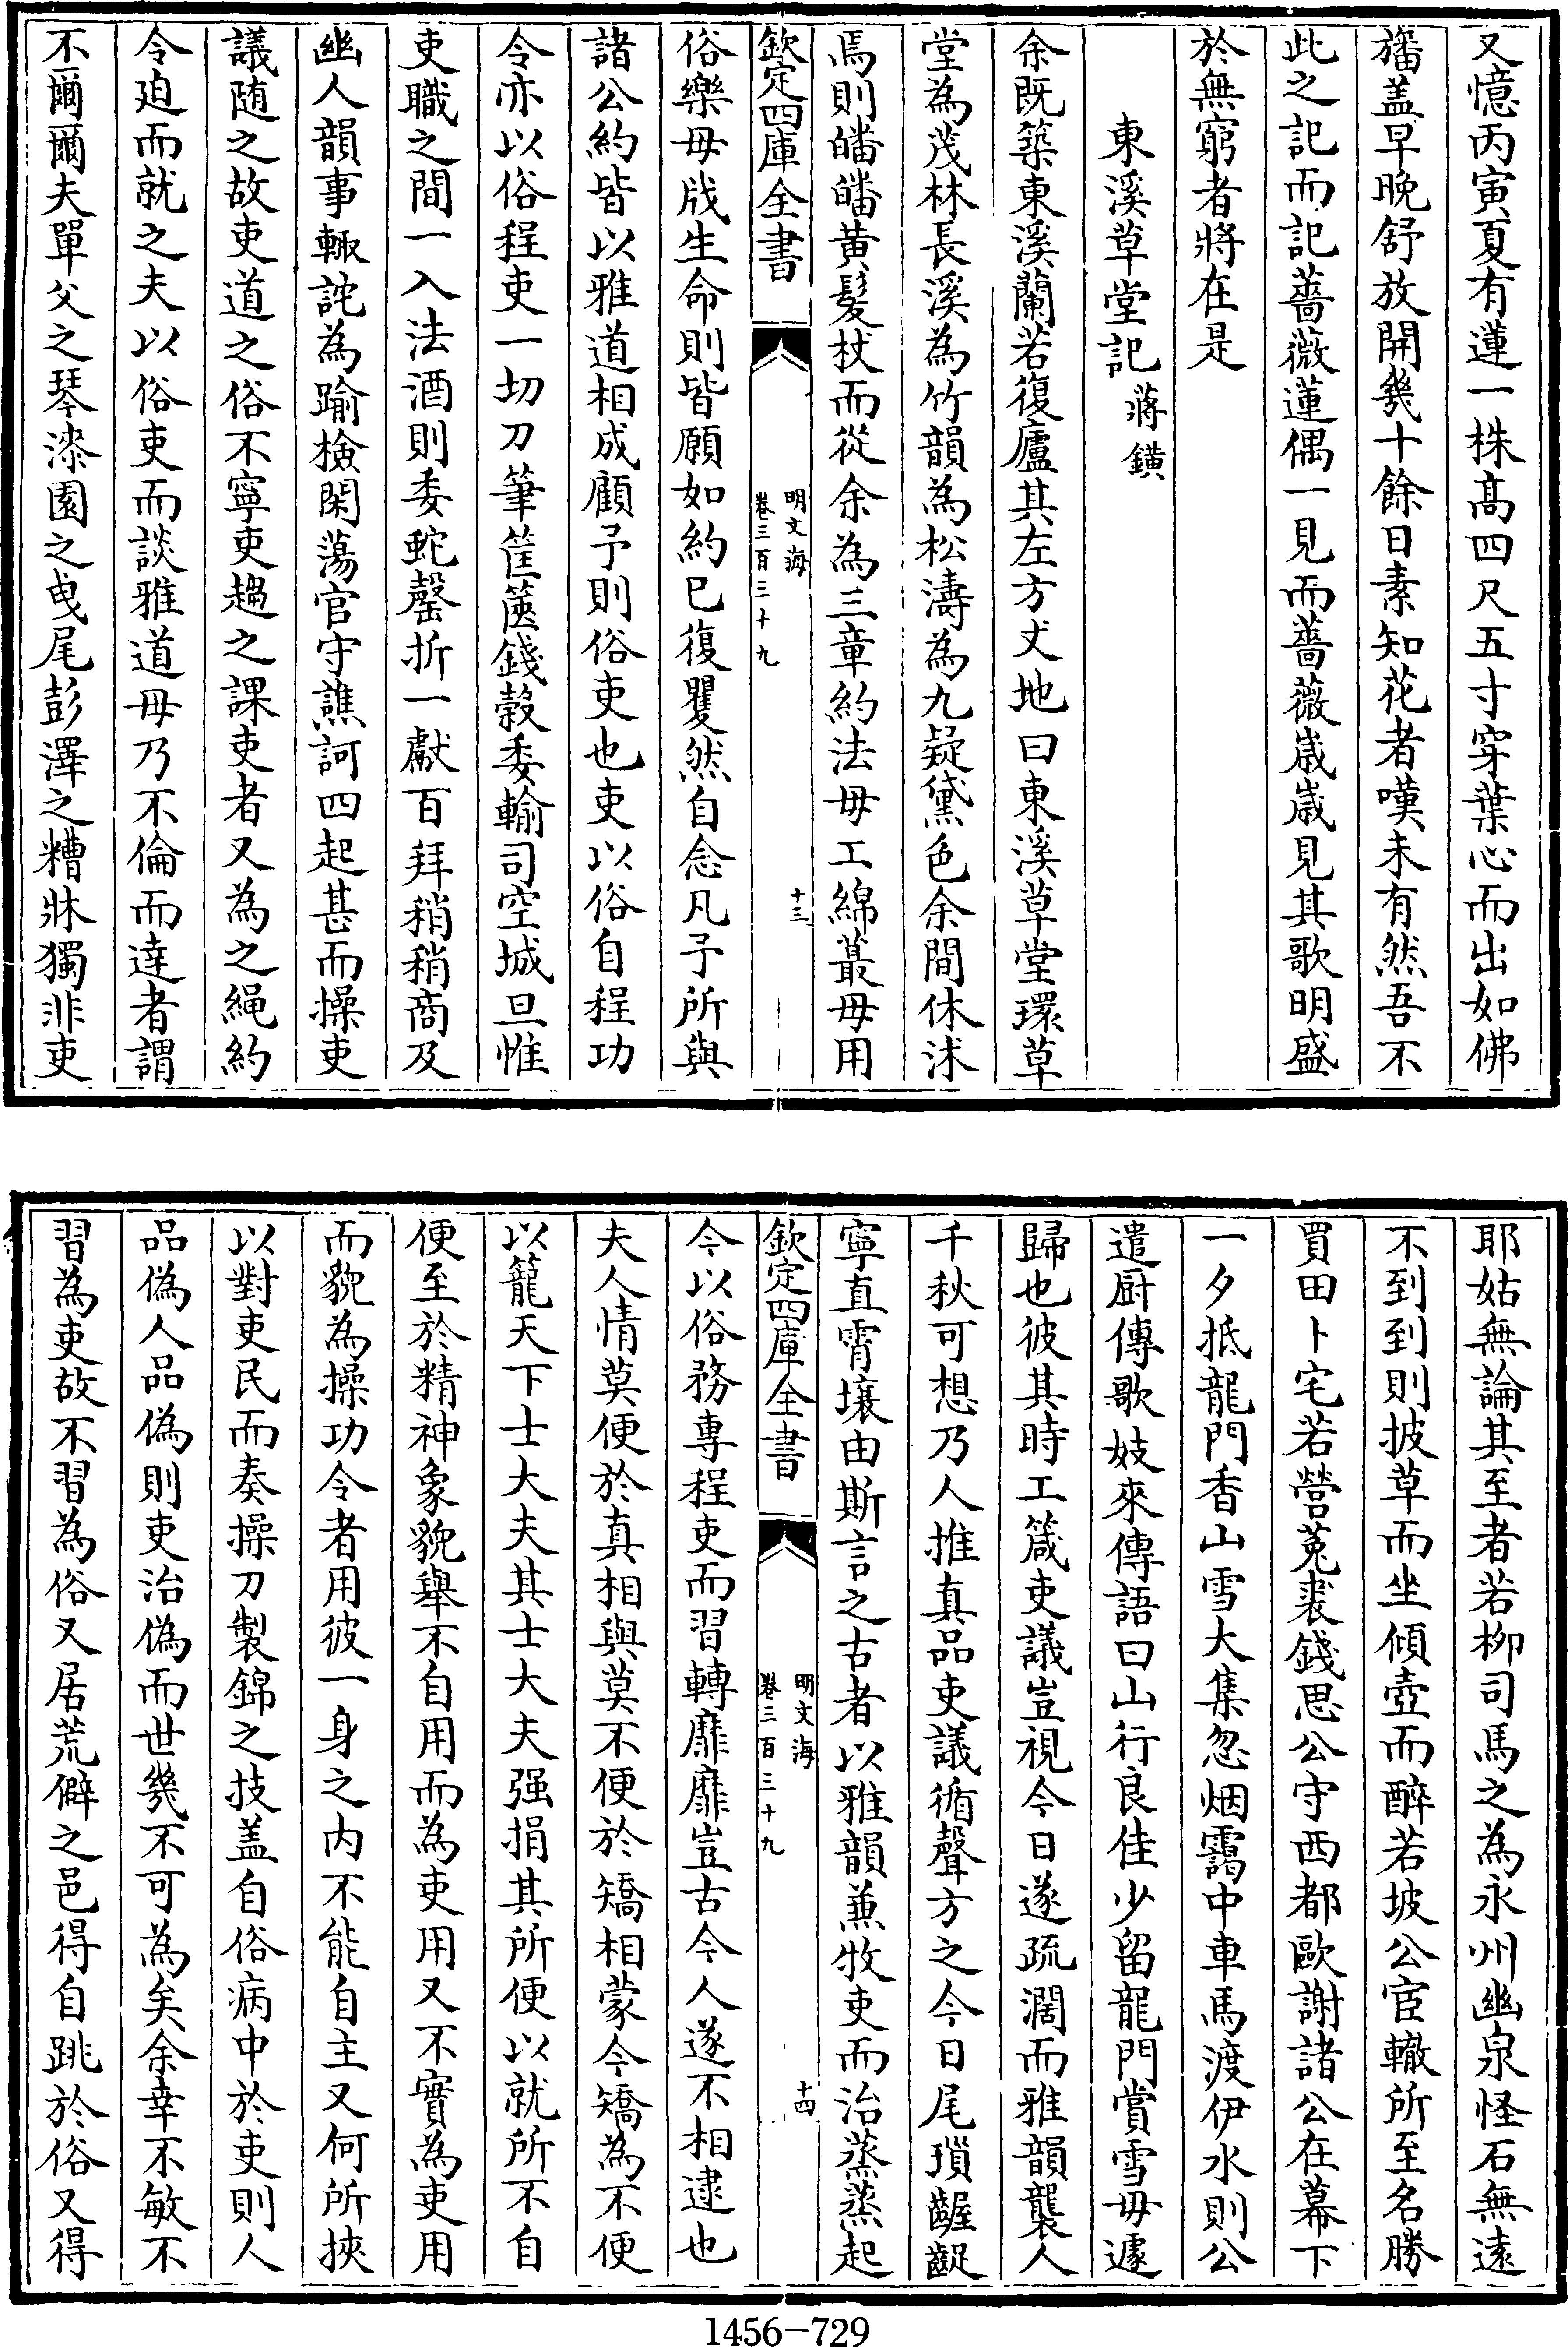 又憶丙寅夏有蓮一株髙四尺五寸穿葉心而出如佛
旛盖早晚舒放開幾十餘日素知花者嘆未有然吾不
此之記而記薔薇蓮偶一見而薔薇嵗嵗見其歌明盛
於無窮者將在是
東溪草堂記 蔣鐄
余既築東溪蘭若復廬其左方丈地曰東溪草堂環草
堂為茂林長溪為竹韻為松濤為九疑黛色余間休沐
焉則皤皤黄髮杖而從余為三章約法毋工綿蕞毋用
欽定四庫全書
明文海
卷三百三十九
十三
俗樂毋戕生命則皆願如約已復瞿然自念凡予所與
諸公約皆以雅道相成顧予則俗吏也吏以俗自程功
令亦以俗程吏一切刀筆筐篋錢榖委輸司空城旦惟
吏職之間一入法酒則委蛇罄折一獻百拜稍稍商及
幽人韻事輙詫為踰檢閑蕩官守譙訶四起甚而操吏
議随之故吏道之俗不寧吏趨之課吏者又為之繩約
令廹而就之夫以俗吏而談雅道毋乃不倫而達者謂
不爾爾夫單父之琴漆園之曵尾彭澤之糟牀獨非吏
耶姑無論其至者若栁司馬之為永州幽泉怪石無逺
不到到則披草而坐傾壺而醉若坡公宦轍所至名勝
買田卜宅若營菟裘錢思公守西都歐謝諸公在幕下
一夕抵龍門香山雪大集忽烟靄中車馬渡伊水則公
遣厨傳歌妓來傳語曰山行良佳少留龍門賞雪毋遽
歸也彼其時工箴吏議豈視今日遂疏濶而雅韻襲人
千秋可想乃人推真品吏議循聲方之今日尾瑣齷齪
寧直霄壤由斯言之古者以雅韻兼牧吏而治蒸蒸起
欽定四庫全書
明文海
卷三百三十九
十四
今以俗務專程吏而習轉靡靡豈古今人遂不相逮也
夫人情莫便於真相與莫不便於矯相蒙今矯為不便
以籠天下士大夫其士大夫强捐其所便以就所不自
便至於精神象貌舉不自用而為吏用又不實為吏用
而貌為操功令者用彼一身之内不能自主又何所挾
以對吏民而奏操刀製錦之技盖自俗病中於吏則人
品偽人品偽則吏治偽而世幾不可為矣余幸不敏不
習為吏故不習為俗又居荒僻之邑得自跳於俗又得
1456-729